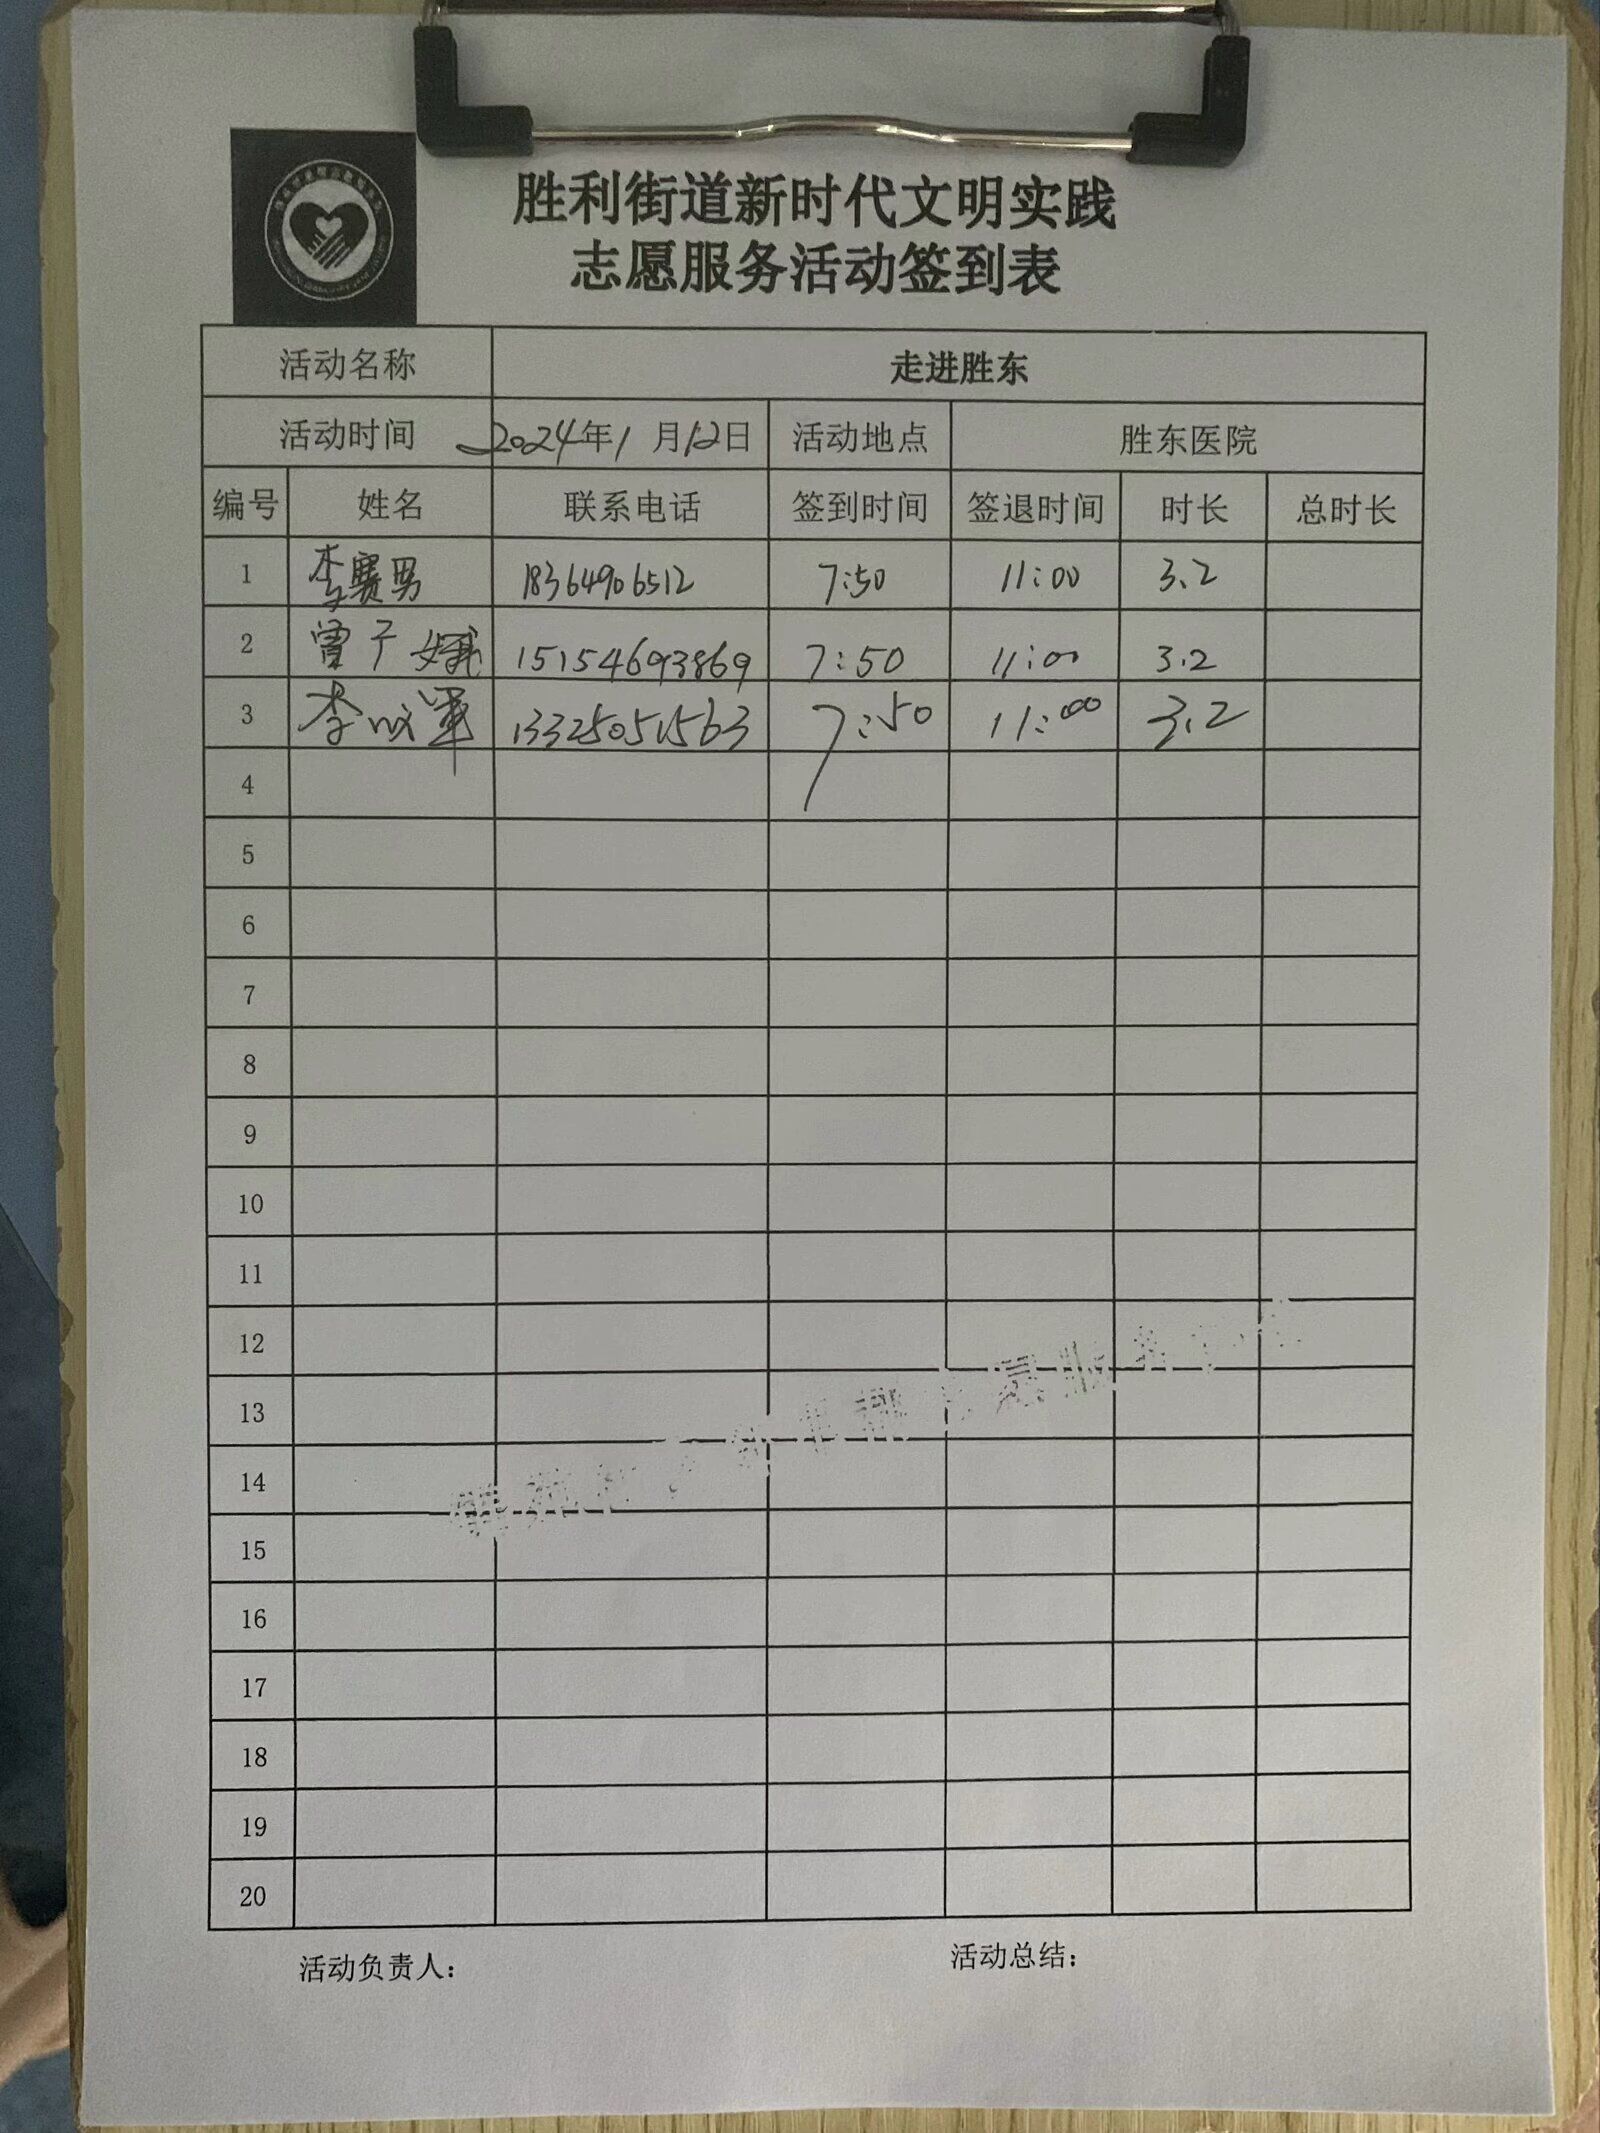 胜利街道新时代文明实践
志愿服务活动签到表
活动名称 走进胜东
活动时间 2024年1月12日 活动地点 胜东医院
编号 姓名 联系电话 签到时间 签退时间 时长 总时长
1 李赛男 18364906512 7:50 11:00 3.2
2 曾子娥 15154693869 7:50 11:00 3.2
3 李军 13325051563 7:50 11:00 3.2
4
5
6
7
8
9
10
11
12
13
14
15
16
17
18
19
20
活动负责人: 活动总结: